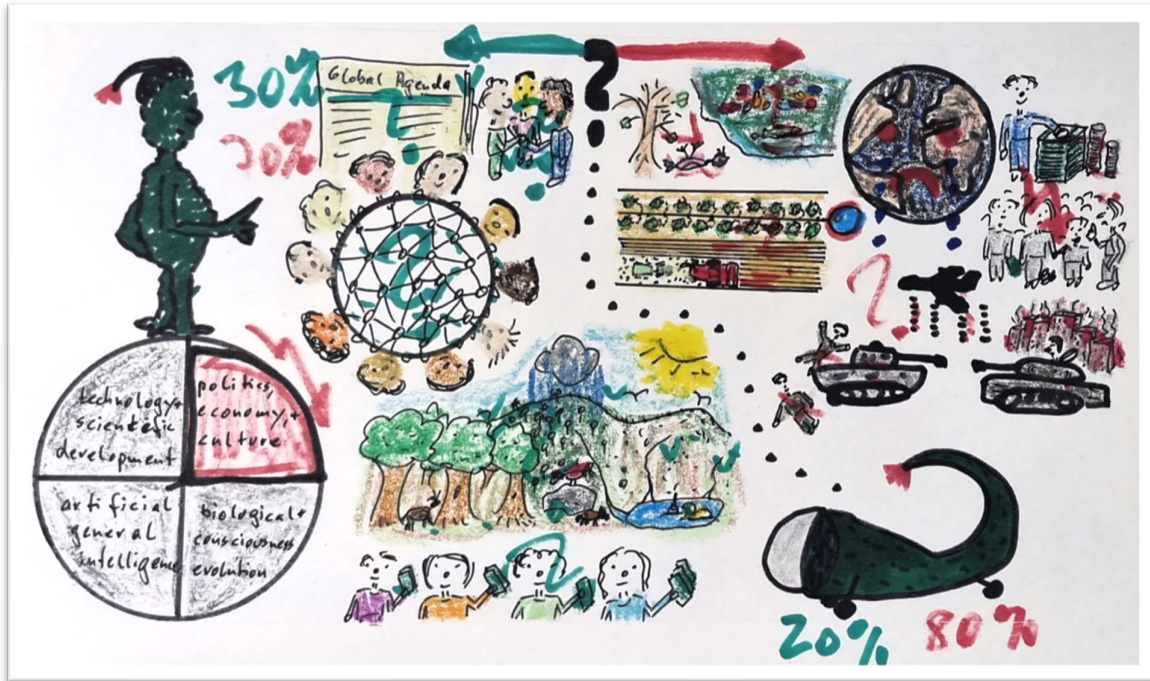 ?
30%
70%
Global Agenda
?
?
technology+
scientific
development
politics,
economy,+
culture
artificial
general
intelligence
biological+
consciousness
evolution
?
20% 80%